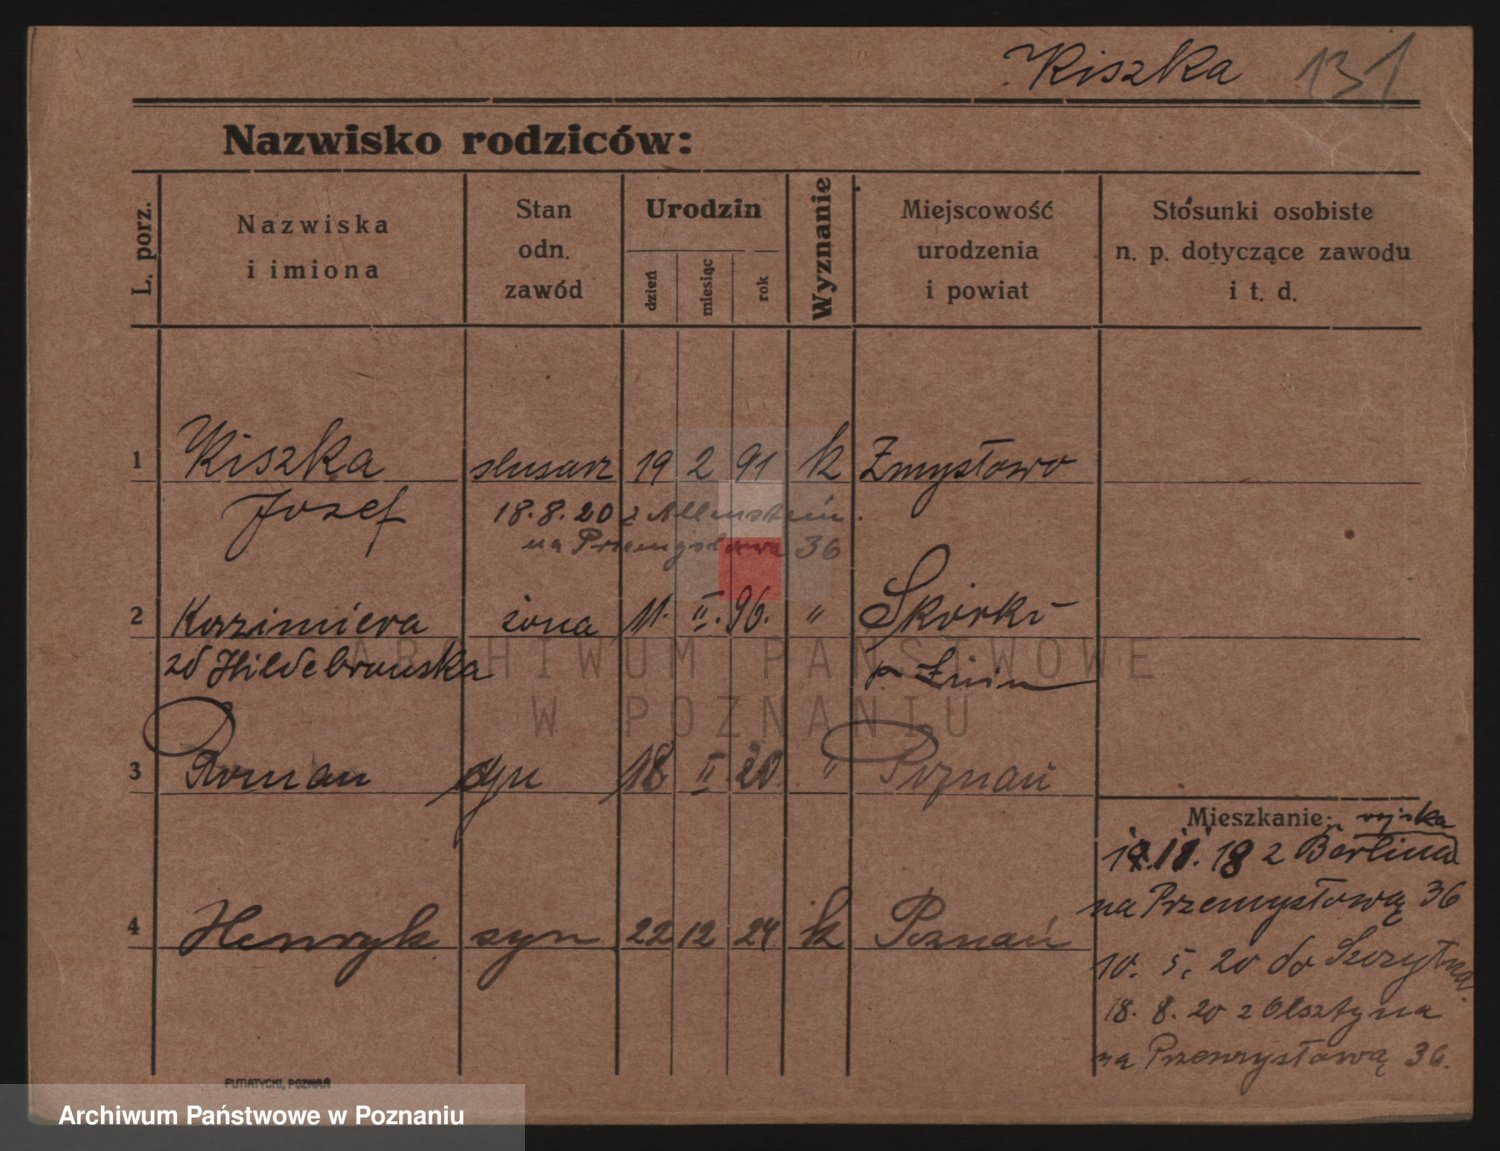 Kiszka 131
Nazwisko rodziców:
L. porz.
Nazwiska
i imiona
Stan
odn.
zawód
Urodzin
dzień
miesiąc
rok
Wyznanie
Miejscowość
urodzenia
i powiat
Stosunki osobiste
n. p. dotyczące zawodu
i t. d.
1 Kiszka ślusarz 19 2 91 k Zmysłowo
Jozef 18.8.20 z Allenstein
na Przemysłowa 36
2 Kazimiera żona 11. II. 96. " Skórki
zd Hildebranska p. Żnin
3 Roman syn 18 II 20 " Poznań
Mieszkanie: wojska
18 z Berlina
na Przemysłową 36
4 Henryk syn 22 12 24 k Poznań
10. 5. 20 do Szczytna.
18. 8. 20 z Olsztyna
na Przemysłową 36.
PUTIATYCKI, POZNAŃ
ARCHIWUM PAŃSTWOWE
W POZNANIU
Archiwum Państwowe w Poznaniu